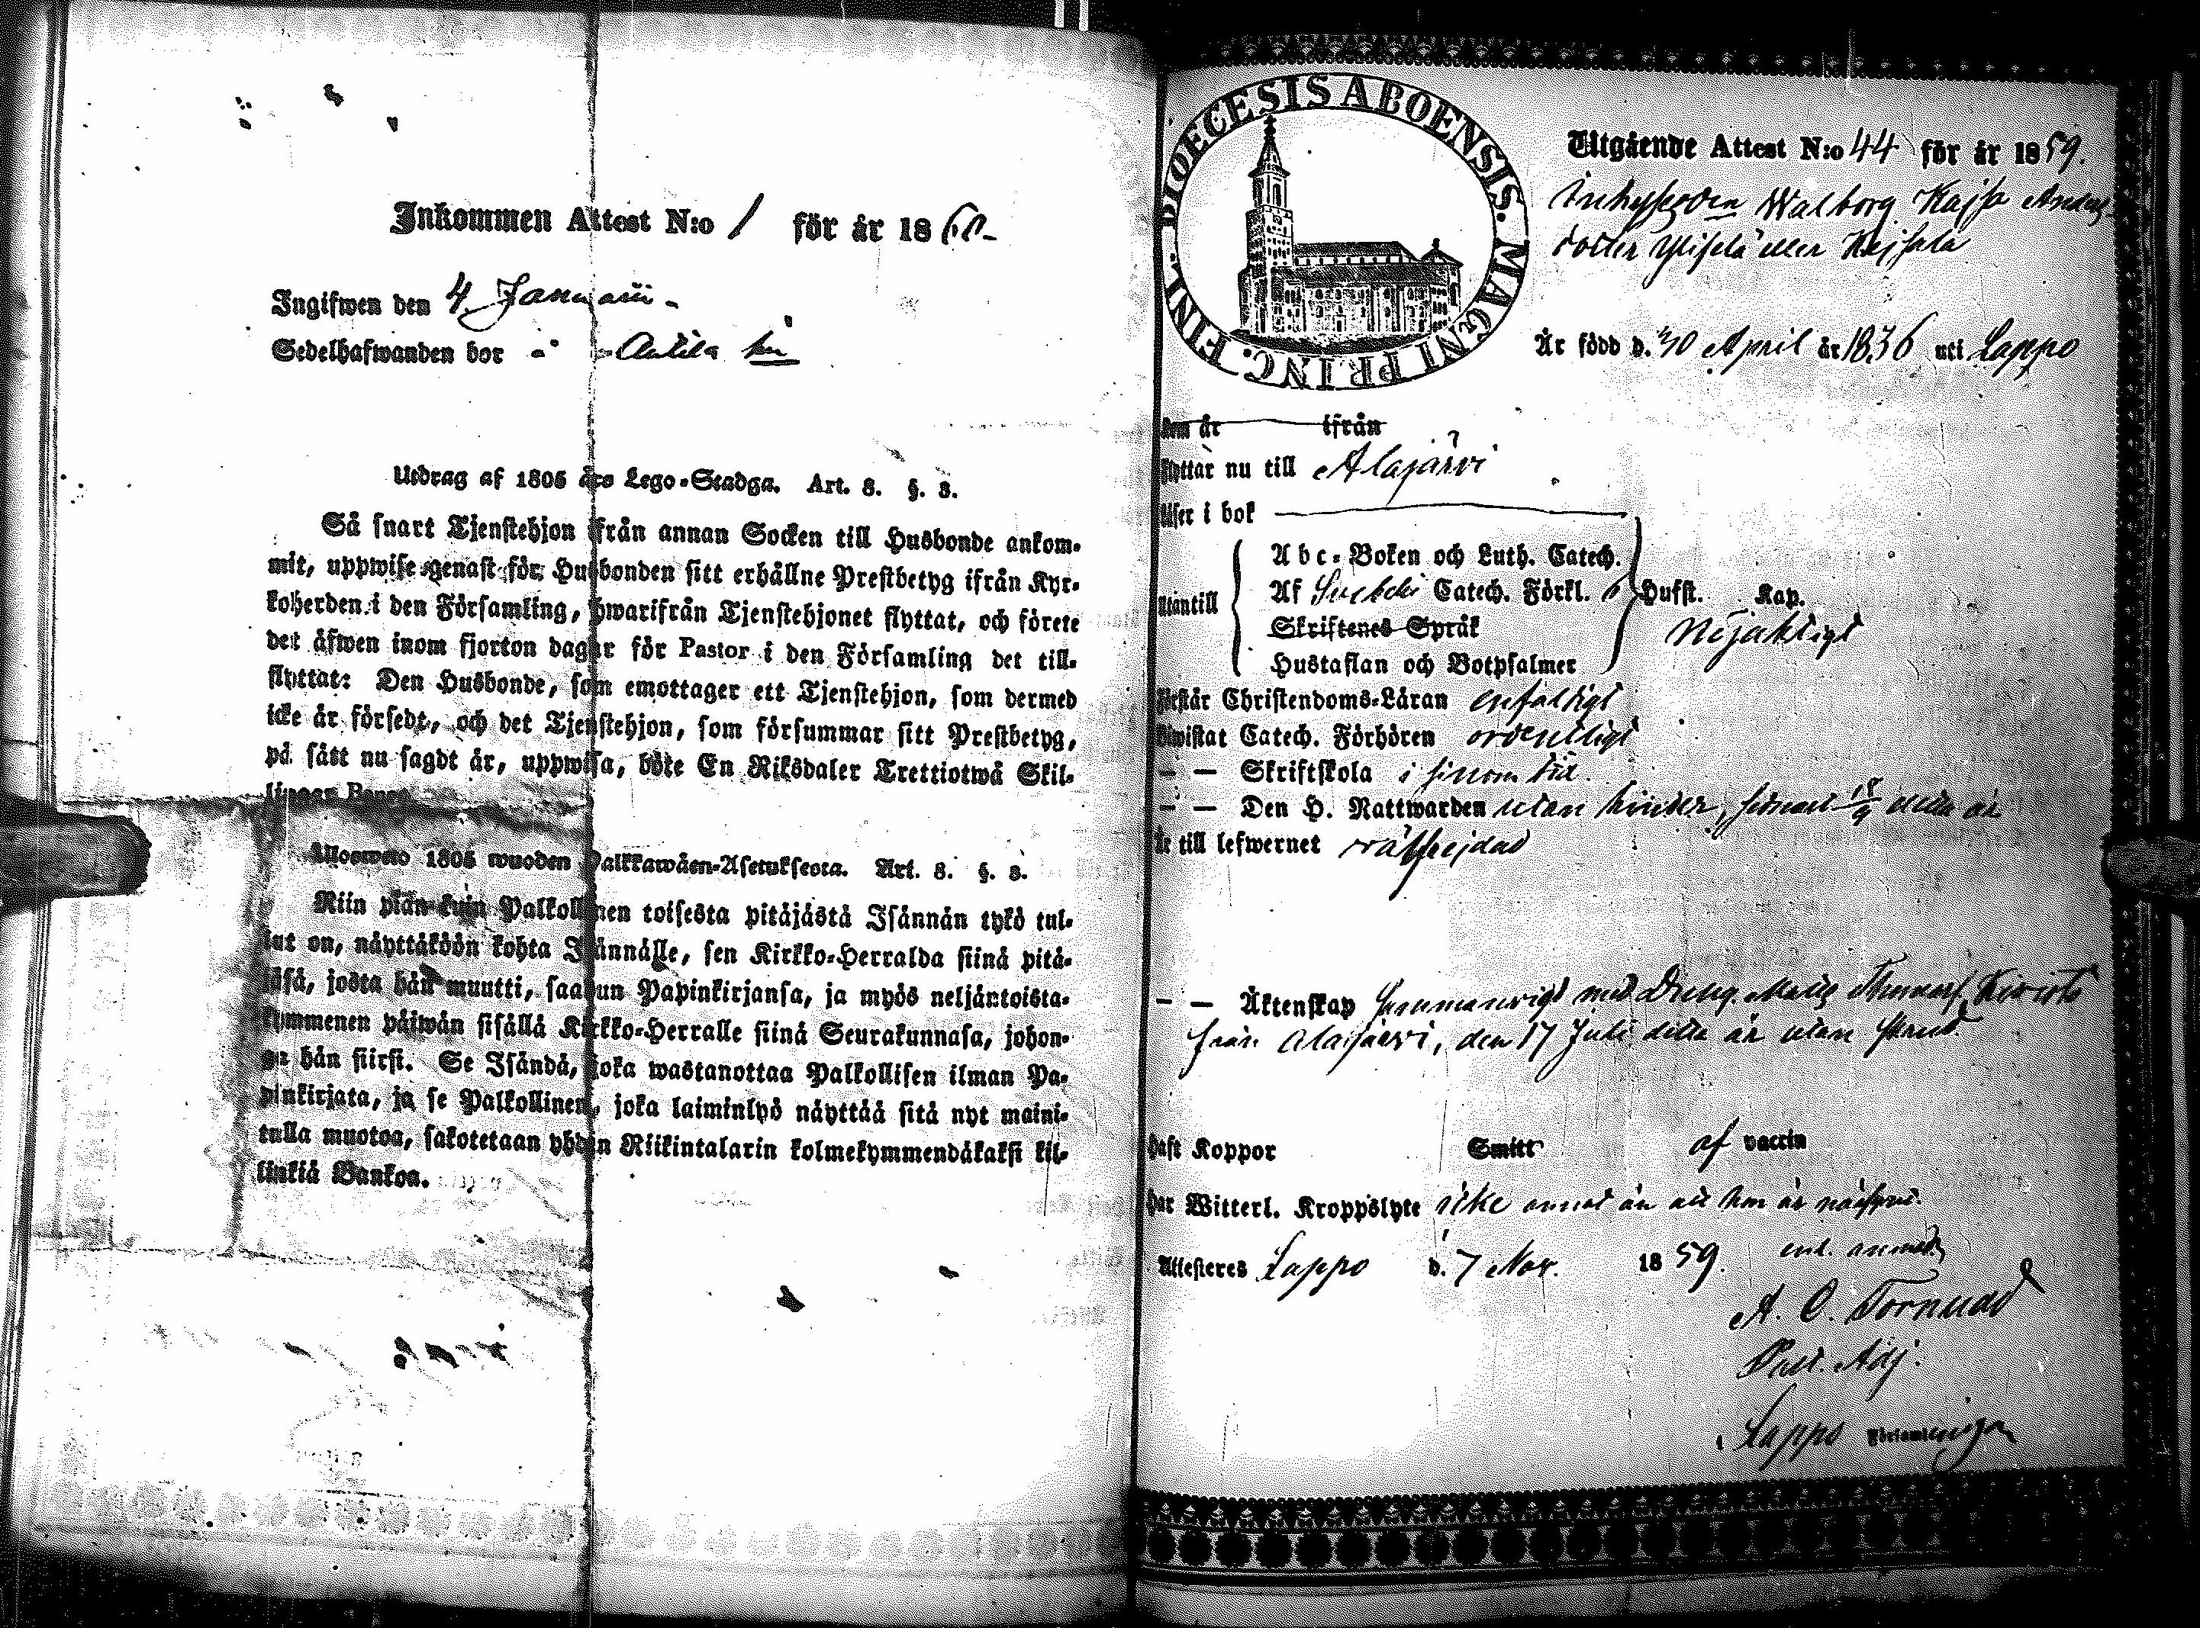 Inkommen Attest N:o 1 för år 1860
Ingifwen den 4 Januarii
Sedelhafwanden bor å Anttila
Utdrag af 1805 års Lego-Stadga. Art. 8. §. 3.
Så snart Tjenstehjon ifrån annan Socken till Husbonde ankom-
mit, uppwise genast för Husbonden sitt erhållne Prestbetyg ifrån Kyr-
koherden i den Församling, hwarifrån Tjenstehjonet flyttat, och förete
det äfwen inom fjorton dagar för Pastor i den Församling det till-
flyttat: Den Husbonde, som emottager ett Tjenstehjon, som dermed
icke är försedt, och det Tjenstehjon, som försummar sitt Prestbetyg,
på sätt nu sagdt är, uppwisa, böte En Riksdaler Trettiotwå Skil-
lingar Banco
Ulosweto 1805 wuoden Palkkawäen-Asetuksesta. Art. 8. §. 3.
Niin pian kuin Palkollinen toisesta pitäjästä Isännän tykö tul-
lut on, näyttäköön kohta Isännälle, sen Kirkko-Herralda siinä pitä-
jäsä, josta hän muutti, saadun Papinkirjansa, ja myös neljäntoista-
kymmenen päiwän sisällä Kirkko-Herralle siinä Seurakunnasa, johon-
ga hän siirsi. Se Isändä, joka wastanottaa Palkollisen ilman Pa-
pinkirjata, ja se Palkollinen, joka laiminlyö näyttää sitä nyt maini-
tulla muotoa, sakotetaan yhden Riikintalarin kolmekymmendäkaksi kil-
linkiä Bankoa.
DIOECESIS ABOENSIS. MAGNI PRINC. FINL.
Utgående Attest N:o 44 för år 1859.
Inhyses Walborg Kajsa Anders-
dotter Ylisela eller Kejsala
Är född d. 30 April år 1836 uti Lappo
kom år ifrån
flyttar nu till Alajärvi
Läser i bok
Abc-Boken och Luth. Catech.
utantill Af Svebelii Catech. Förkl. Hufst. Kap.
Skriftenes Språk nöjaktigt
Hustaflan och Botpsalmer
Förstår Christendoms-Läran enfaldigt
Biwistat Catech. Förhören ordentligt
— — Skriftskola i sinom tid.
— — Den H. Nattwarden utan hinder, senast detta år
Är till lefwernet
— — Äktenskap sammanvigd med Dreng. Matts Kiwistö
från Alajärvi, den 17 Juli detta år utan
Haft Koppor Smitt af vaccin
Har Witterl. Kroppslyte icke annat än att hon är närsynt.
Attesteres Lappo d. 7 Nov. 1859.
A. O. Tornudd
Past. Adj.
i Lappo Församlingen